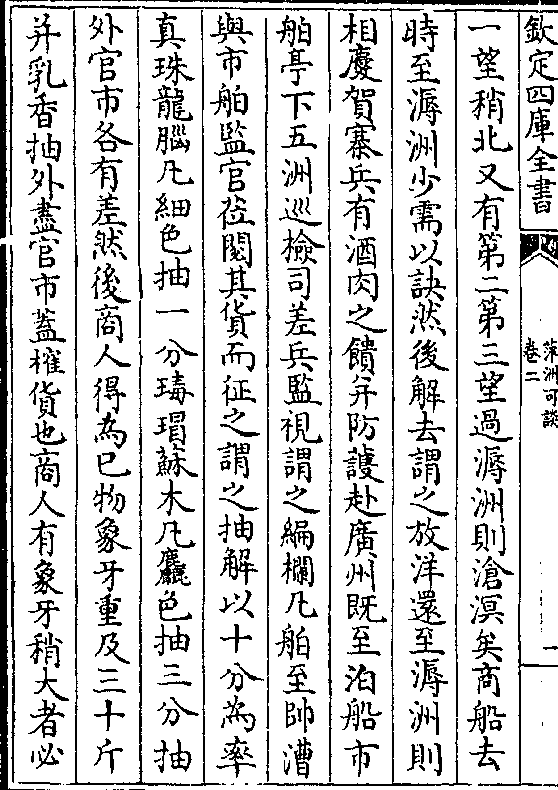 欽定四庫全書
萍洲可談
卷二
一
一望稍北又有第二第三望過溽洲則滄溟矣商船去
時至溽洲少需以訣然後解去謂之放洋還至溽洲則
相慶賀寨兵有酒肉之饋并防護赴廣州既至泊船市
舶亭下五洲巡檢司差兵監視謂之編欄凡舶至帥漕
與市舶監官莅閱其貨而征之謂之抽解以十分為率
真珠龍腦凡細色抽一分瑇瑁蘇木凡麤色抽三分抽
外官市各有差然後商人得為己物象牙重及三十斤
并乳香抽外盡官市蓋榷貨也商人有象牙稍大者必